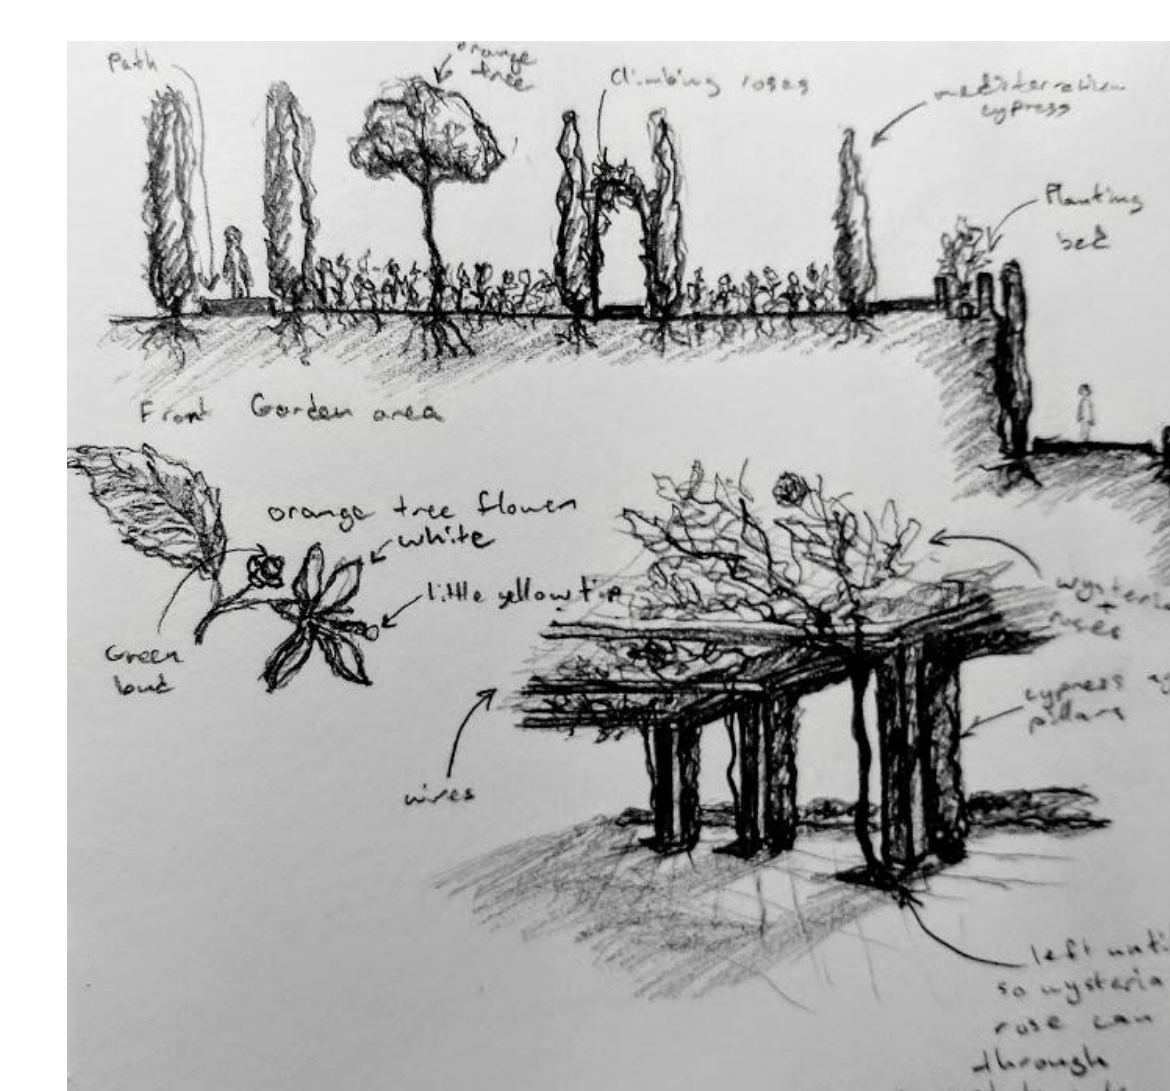 Path
orange
tree
Climbing roses
mediterranean
cypress
Planting
bed
Front Garden area
orange tree flower
white
little yellow tip
Green
bud
wysteria
+
roses
cypress
pillars
wires
left
so wysteria
rose can
through